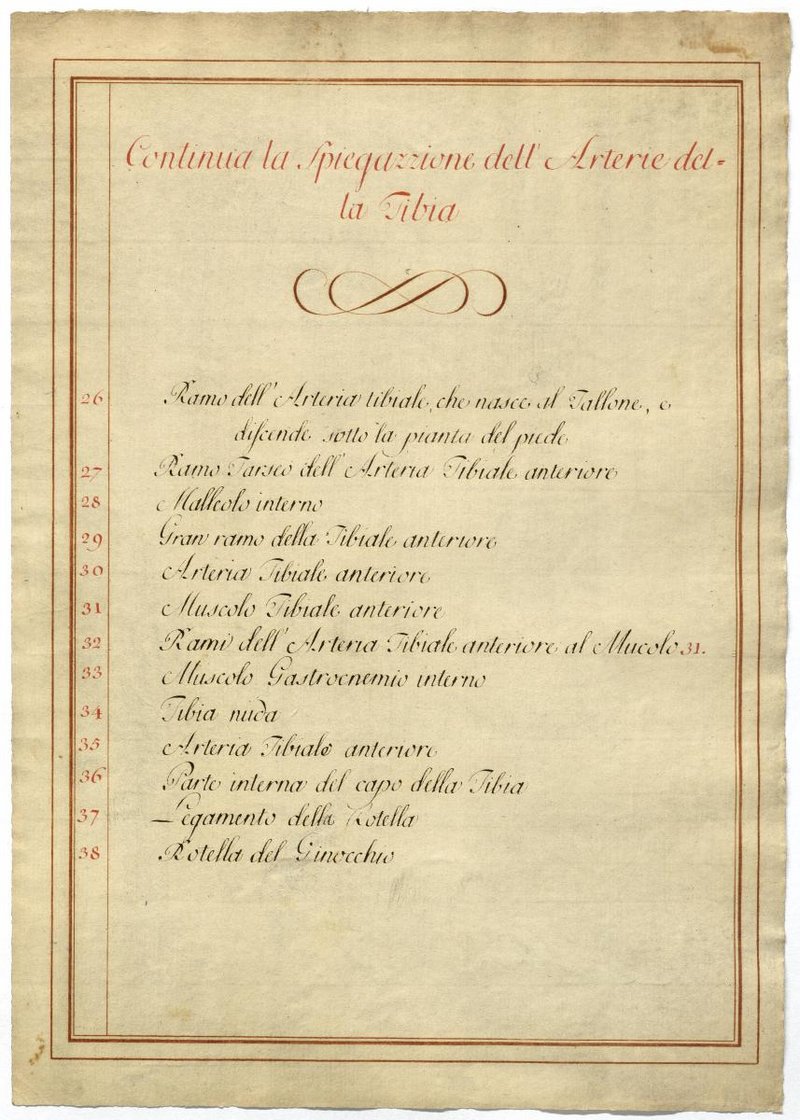 Continua la Spiegazzione dell'Arterie del=
la Tibia
26 Ramo dell'Arteria tibiale, che nasce al Tallone, e
discende sotto la pianta del piede
27 Ramo Tarseo dell'Arteria Tibiale anteriore
28 Malleolo interno
29 Gran ramo della Tibiale anteriore
30 Arteria Tibiale anteriore
31 Muscolo Tibiale anteriore
32 Rami dell'Arteria Tibiale anteriore al Mucolo 31.
33 Muscolo Gastrocnemio interno
34 Tibia nuda
35 Arteria Tibiale anteriore
36 Parte interna del capo della Tibia
37 Legamento della Rotella
38 Rotella del Ginocchio